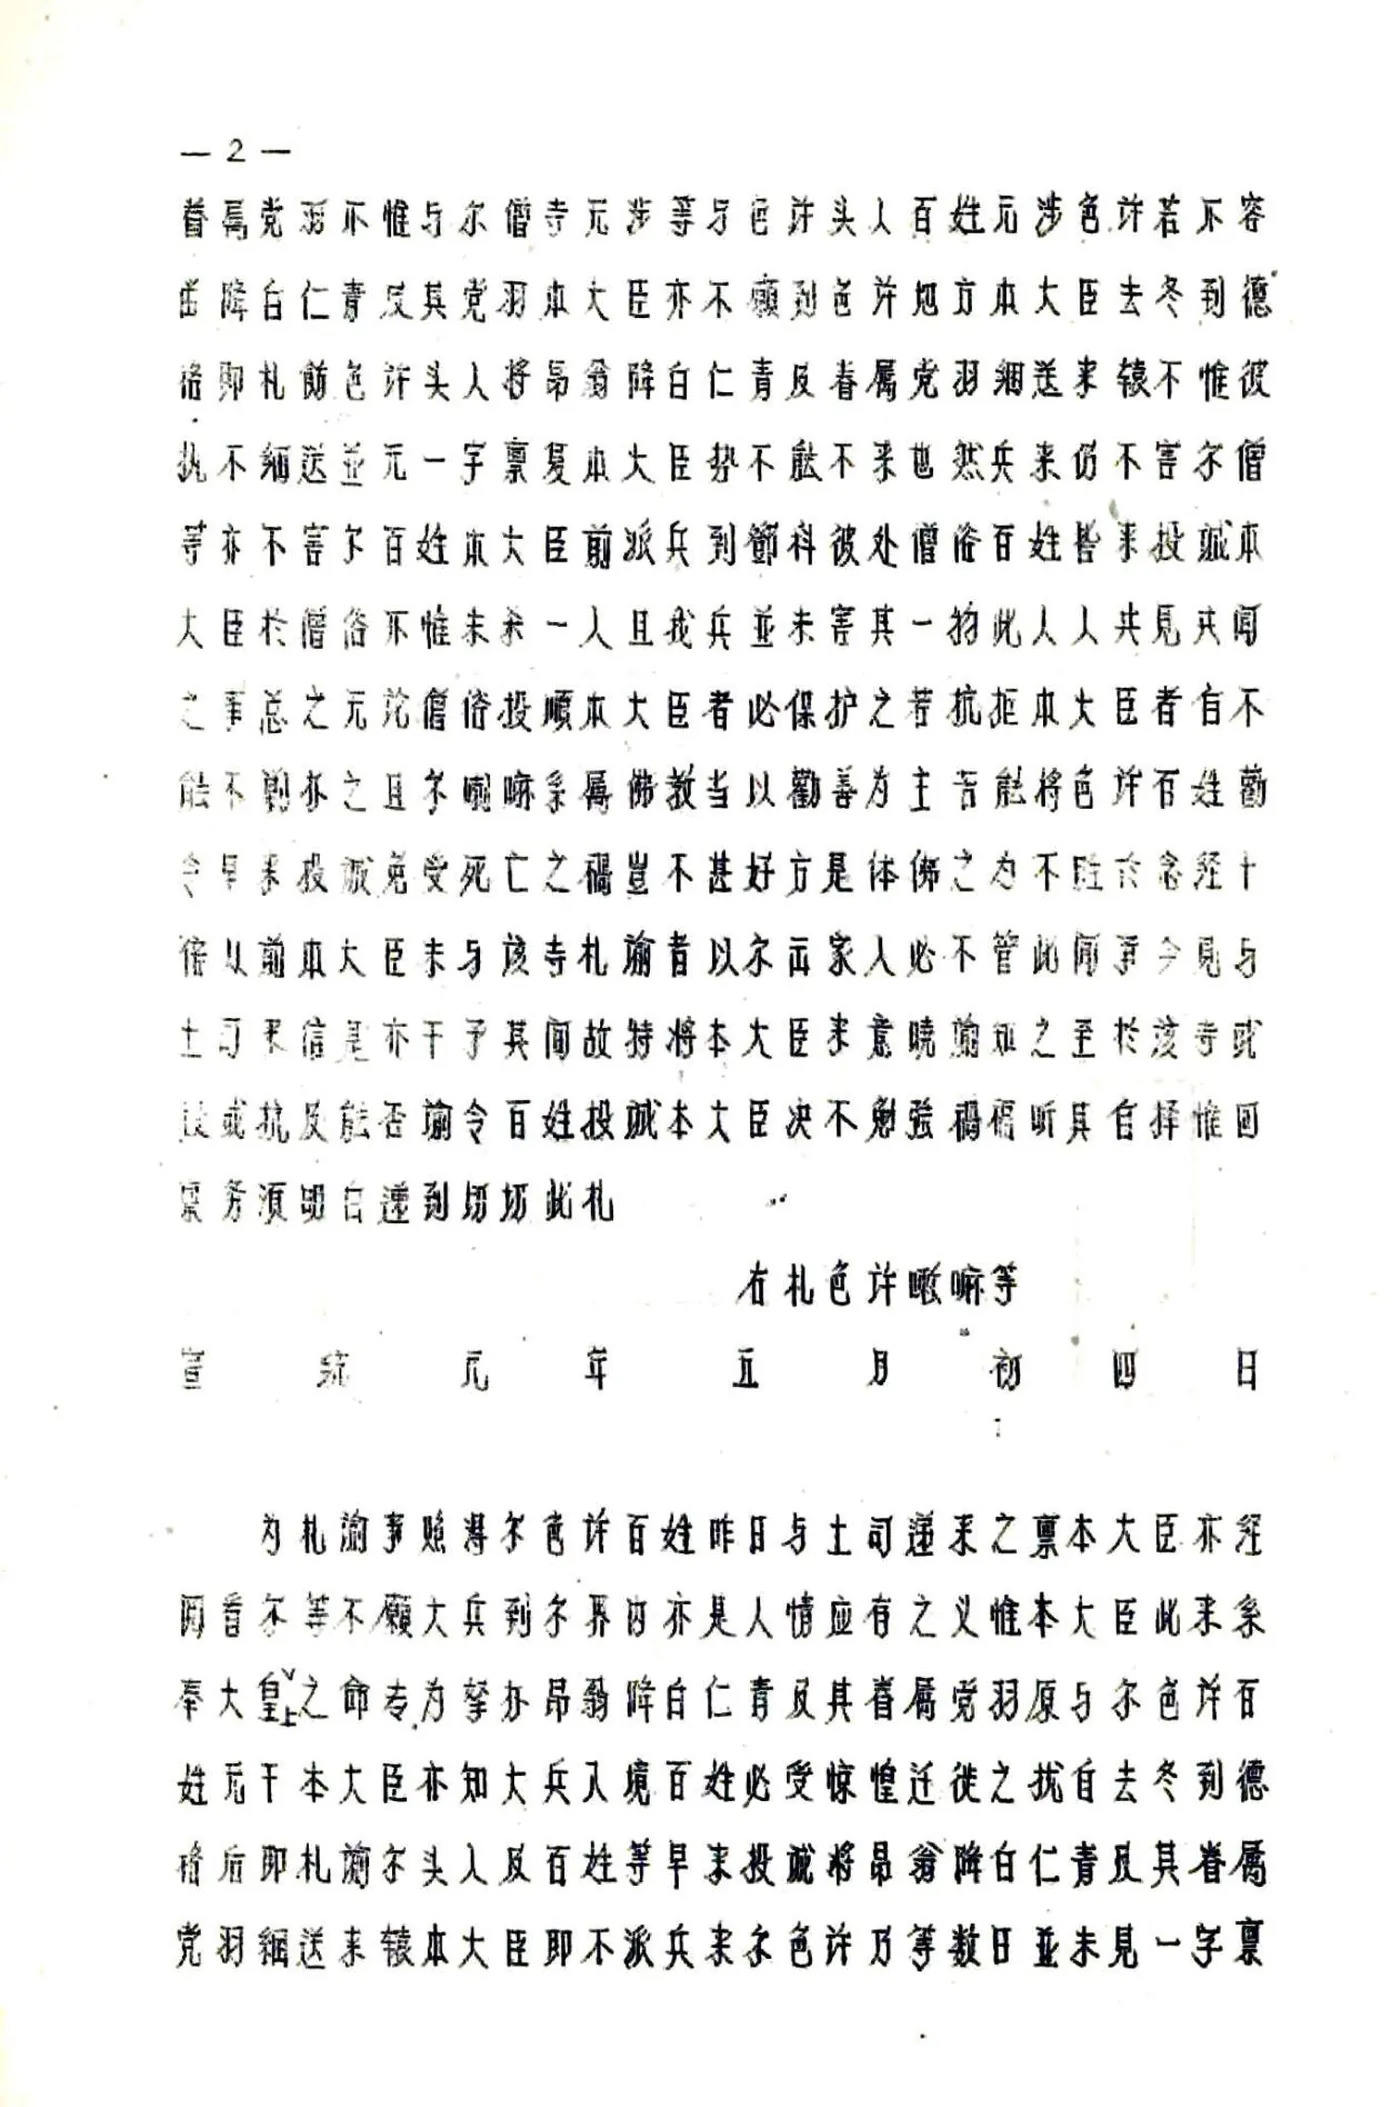 — 2 —
眷属党羽不惟与尔僧寺无涉等与色许头人百姓无涉色许若不容
留降白仁青及其党羽本大臣亦不愿到色许地方本大臣去冬到德
格即札饬色许头人将昂翁降白仁青及眷属党羽綑送来辕不惟彼
执不綑送並无一字禀复本大臣势不能不来也然兵来仍不害尔僧
等亦不害尔百姓本大臣前派兵到鄧科彼处僧俗百姓皆来投诚本
大臣於僧俗不惟未杀一人且我兵並未害其一物此人人共見共闻
之事总之无论僧俗投順本大臣者必保护之若抗拒本大臣者自不
能不剿办之且尔喇嘛系属佛教当以勸善为主吾能将色许百姓勸
令早来投诚免受死亡之禍豈不甚好方是体佛之为不胜於念经十
倍从前本大臣未与该寺札諭者以尔出家人必不管此闲事今見与
土司来信是亦干予其间故特将本大臣来意曉諭知之至於该寺或
投或抗及能否諭令百姓投诚本大臣决不勉強禍福听其自择惟回
禀务须明白递到切切此札
右札色许喇嘛等
宣统元年五月初四日
为札諭事照得尔色许百姓昨日与土司递来之禀本大臣亦经
阅看尔等不願大兵到尔界内亦是人情应有之义惟本大臣此来系
奉大皇上之命专为拏办昂翁降白仁青及其眷属党羽原与尔色许百
姓无干本大臣亦知大兵入境百姓必受惊惶迁徙之扰自去冬到德
格后即札諭尔头人及百姓等早来投诚将昂翁降白仁青及其眷属
党羽綑送来辕本大臣即不派兵来尔色许乃等数日並未見一字禀